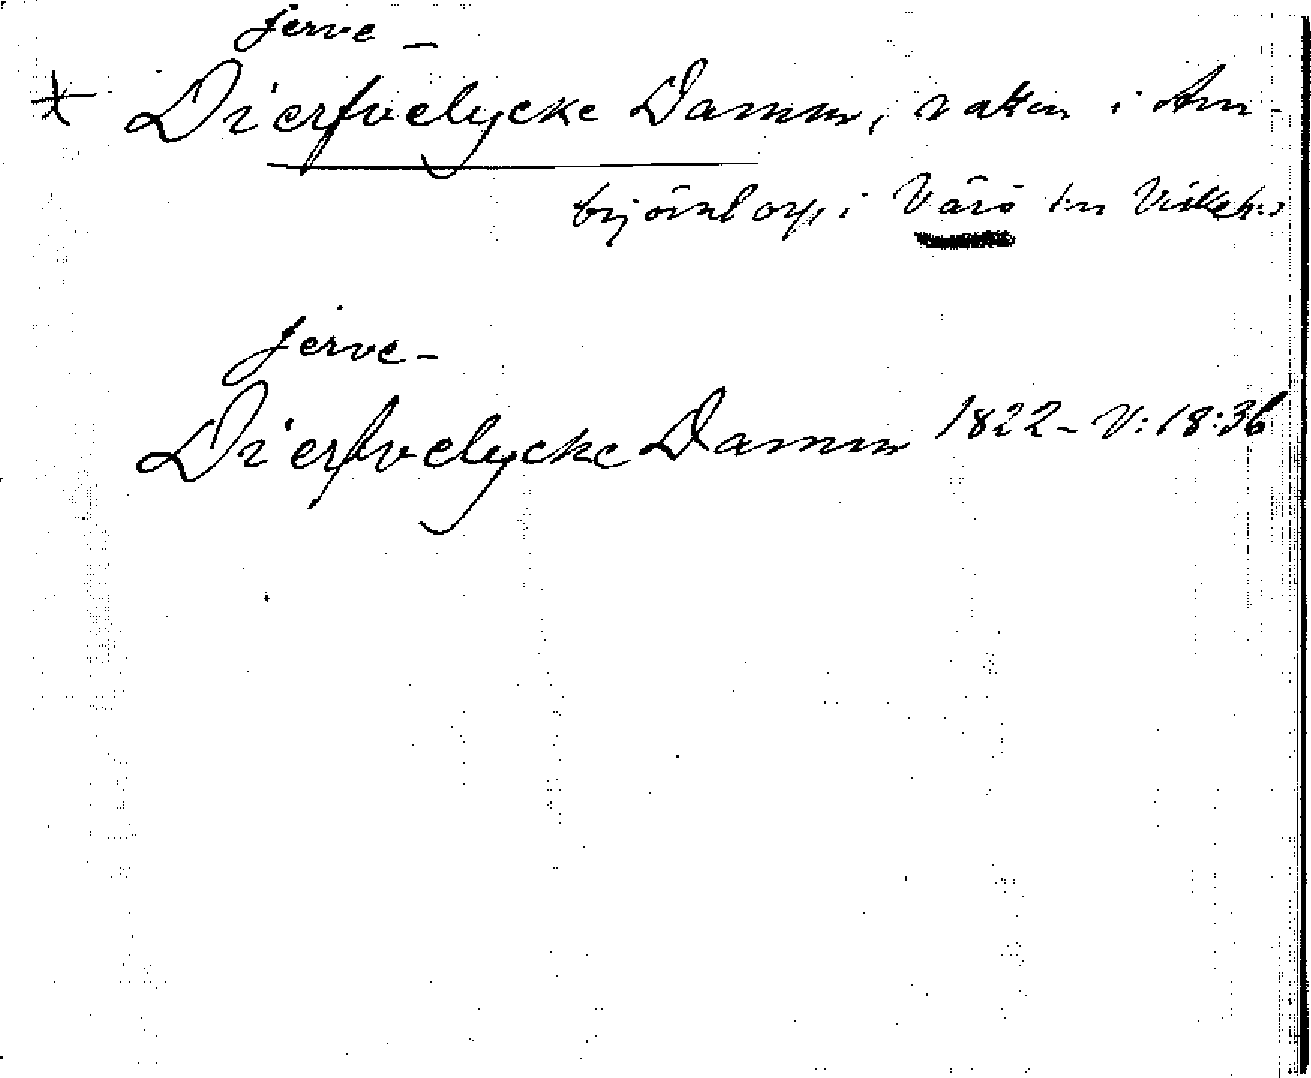 Jerve-
+ Dierfvelycke Damm, vatten i Arn-
björntorp i Värö sn Viske hd
Jerve-
Dierfvelycke Damm 1822-V:18:36